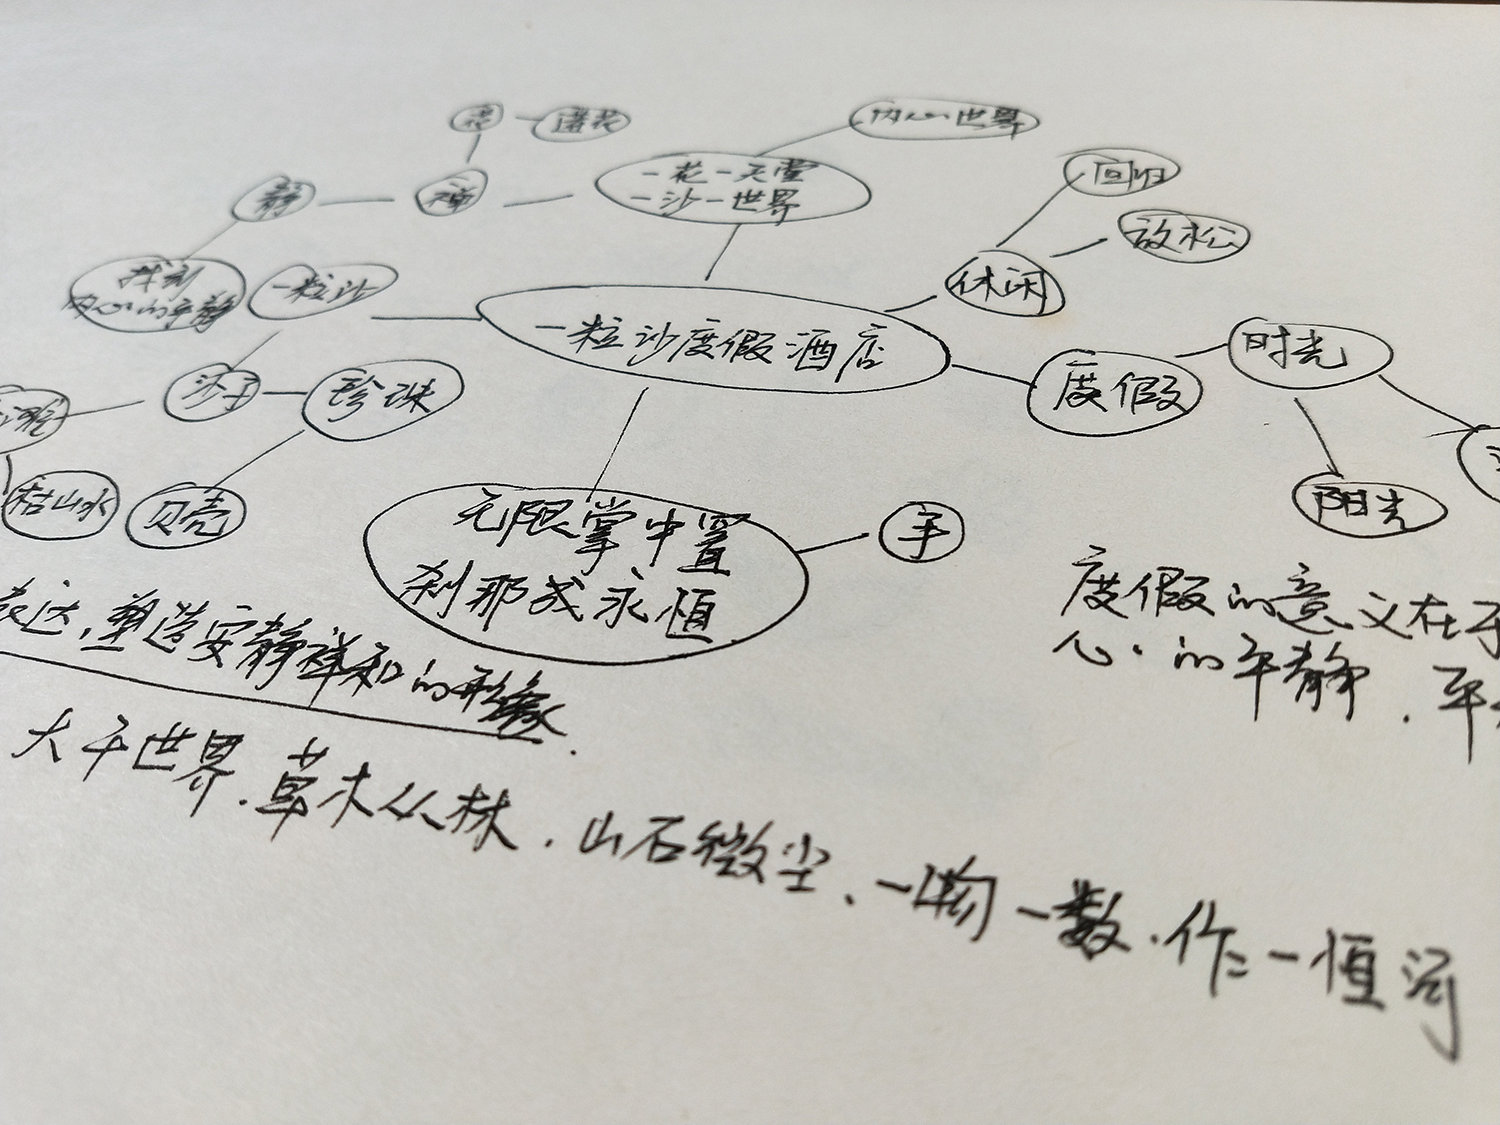 内心世界
一花一天堂
一沙一世界
禅
静
回归
放松
休闲
找到
内心的平静
一粒沙
一粒沙度假酒店
时光
度假
沙子
珍珠
枯山水
贝壳
阳光
无限掌中置
刹那成永恒
手
表达,塑造安静祥和的形象.
度假的意义在于
心的平静.平
大千世界.草木丛林.山石微尘、一物一数.作一恒河